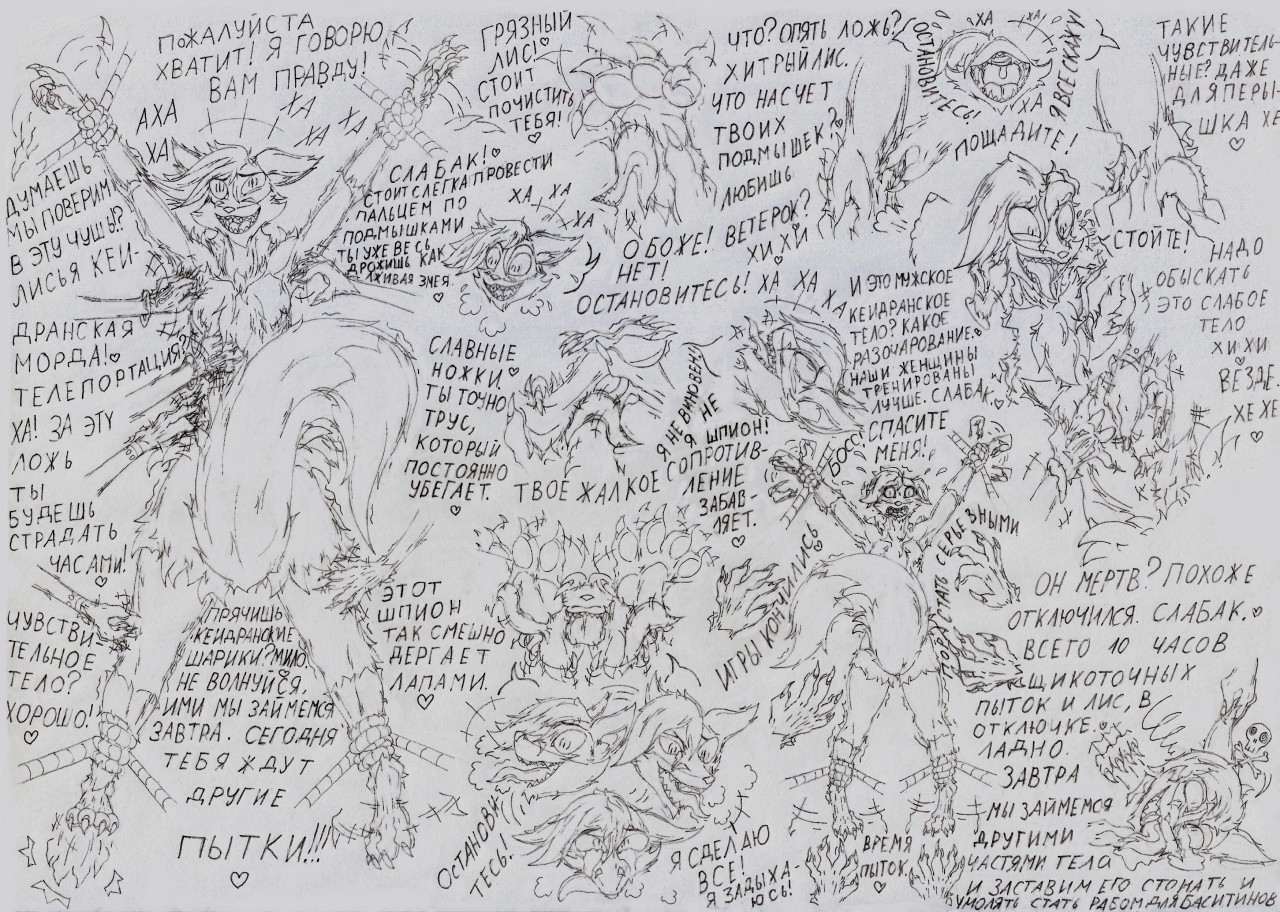 ПОЖАЛУЙСТА
ХВАТИТ! Я ГОВОРЮ
ВАМ ПРАВДУ!
АХА
ХА!
ХА
ХА
ХА
ДУМАЕШЬ
МЫ ПОВЕРИМ
В ЭТУ ЧУШЬ!?
ЛИСЬЯ КЕЙ-
ДРАНСКАЯ
МОРДА!
ТЕЛЕПОРТАЦИЯ?
ХА! ЗА ЭТУ
ЛОЖЬ
ТЫ
БУДЕШЬ
СТРАДАТЬ
ЧАСАМИ!
ЧУВСТВИ
ТЕЛЬНОЕ
ТЕЛО?
ХОРОШО!
ПРЯЧИШЬ
КЕЙДРАНСКИЕ
ШАРИКИ? МИЛО.
НЕ ВОЛНУЙСЯ,
ИМИ МЫ ЗАЙМЕМСЯ
ЗАВТРА. СЕГОДНЯ
ТЕБЯ ЖДУТ
ДРУГИЕ
ПЫТКИ!!!
ГРЯЗНЫЙ
ЛИС.
СТОИТ
ПОЧИСТИТЬ
ТЕБЯ!
СЛАБАК!
СТОИТ СЛЕГКА ПРОВЕСТИ
ПАЛЬЦЕМ ПО
ПОДМЫШКАМИ
ТЫ УЖЕ ВЕСЬ
ДРОЖИШЬ КАК
ЛЖИВАЯ ЗМЕЯ.
ХА ХА
ХА
ЧТО? ОПЯТЬ ЛОЖЬ?
ХИТРЫЙ ЛИС.
ЧТО НАСЧЕТ
ТВОИХ
ПОДМЫШЕК?
ЛЮБИШЬ
ВЕТЕРОК?
ХИ ХИ
О БОЖЕ!
НЕТ!
ОСТАНОВИТЕСЬ! ХА ХА
ХА
ХА
ХА
ОСТАНОВИТЕСЬ!
ХА
Я ВСЕ СКАЖУ!
ПОЩАДИТЕ!
ТАКИЕ
ЧУВСТВИТЕЛЬ-
НЫЕ? ДАЖЕ
ДЛЯ ПЕРЫ-
ШКА ХЕ
СТОЙТЕ!
НАДО
ОБЫСКАТЬ
ЭТО СЛАБОЕ
ТЕЛО
ХИ ХИ
ВЕЗДЕ.
ХЕ ХЕ
СЛАВНЫЕ
НОЖКИ.
ТЫ ТОЧНО
ТРУС,
КОТОРЫЙ
ПОСТОЯННО
УБЕГАЕТ.
Я НЕ ВИНОВЕН!
Я НЕ
ШПИОН!
ТВОЕ ЖАЛКОЕ СОПРОТИВ-
ЛЕНИЕ
ЗАБАВ-
ЛЯЕТ.
И ЭТО МУЖСКОЕ
КЕЙДРАНСКОЕ
ТЕЛО? КАКОЕ
РАЗОЧАРОВАНИЕ.
НАШИ ЖЕНЩИНЫ
ТРЕНИРОВАНЫ
ЛУЧШЕ. СЛАБАК.
БОСС!
СПАСИТЕ
МЕНЯ!
ЭТОТ
ШПИОН
ТАК СМЕШНО
ДЕРГАЕТ
ЛАПАМИ.
ИГРЫ КОНЧИЛИСЬ
ПОРА СТАТЬ СЕРЬЕЗНЫМИ
ОСТАНОВИ
ТЕСЬ!
Я СДЕЛАЮ
ВСЕ!
Я ЗАДЫХА-
ЮСЬ!
ВРЕМЯ
ПЫТОК.
ОН МЕРТВ? ПОХОЖЕ
ОТКЛЮЧИЛСЯ. СЛАБАК.
ВСЕГО 10 ЧАСОВ
ЩИКОТОЧНЫХ
ПЫТОК И ЛИС, В
ОТКЛЮЧКЕ.
ЛАДНО.
ЗАВТРА
МЫ ЗАЙМЕМСЯ
ДРУГИМИ
ЧАСТЯМИ ТЕЛА
И ЗАСТАВИМ ЕГО СТОНАТЬ И
УМОЛЯТЬ СТАТЬ РАБОМ ДЛЯ БАСИТИНОВ